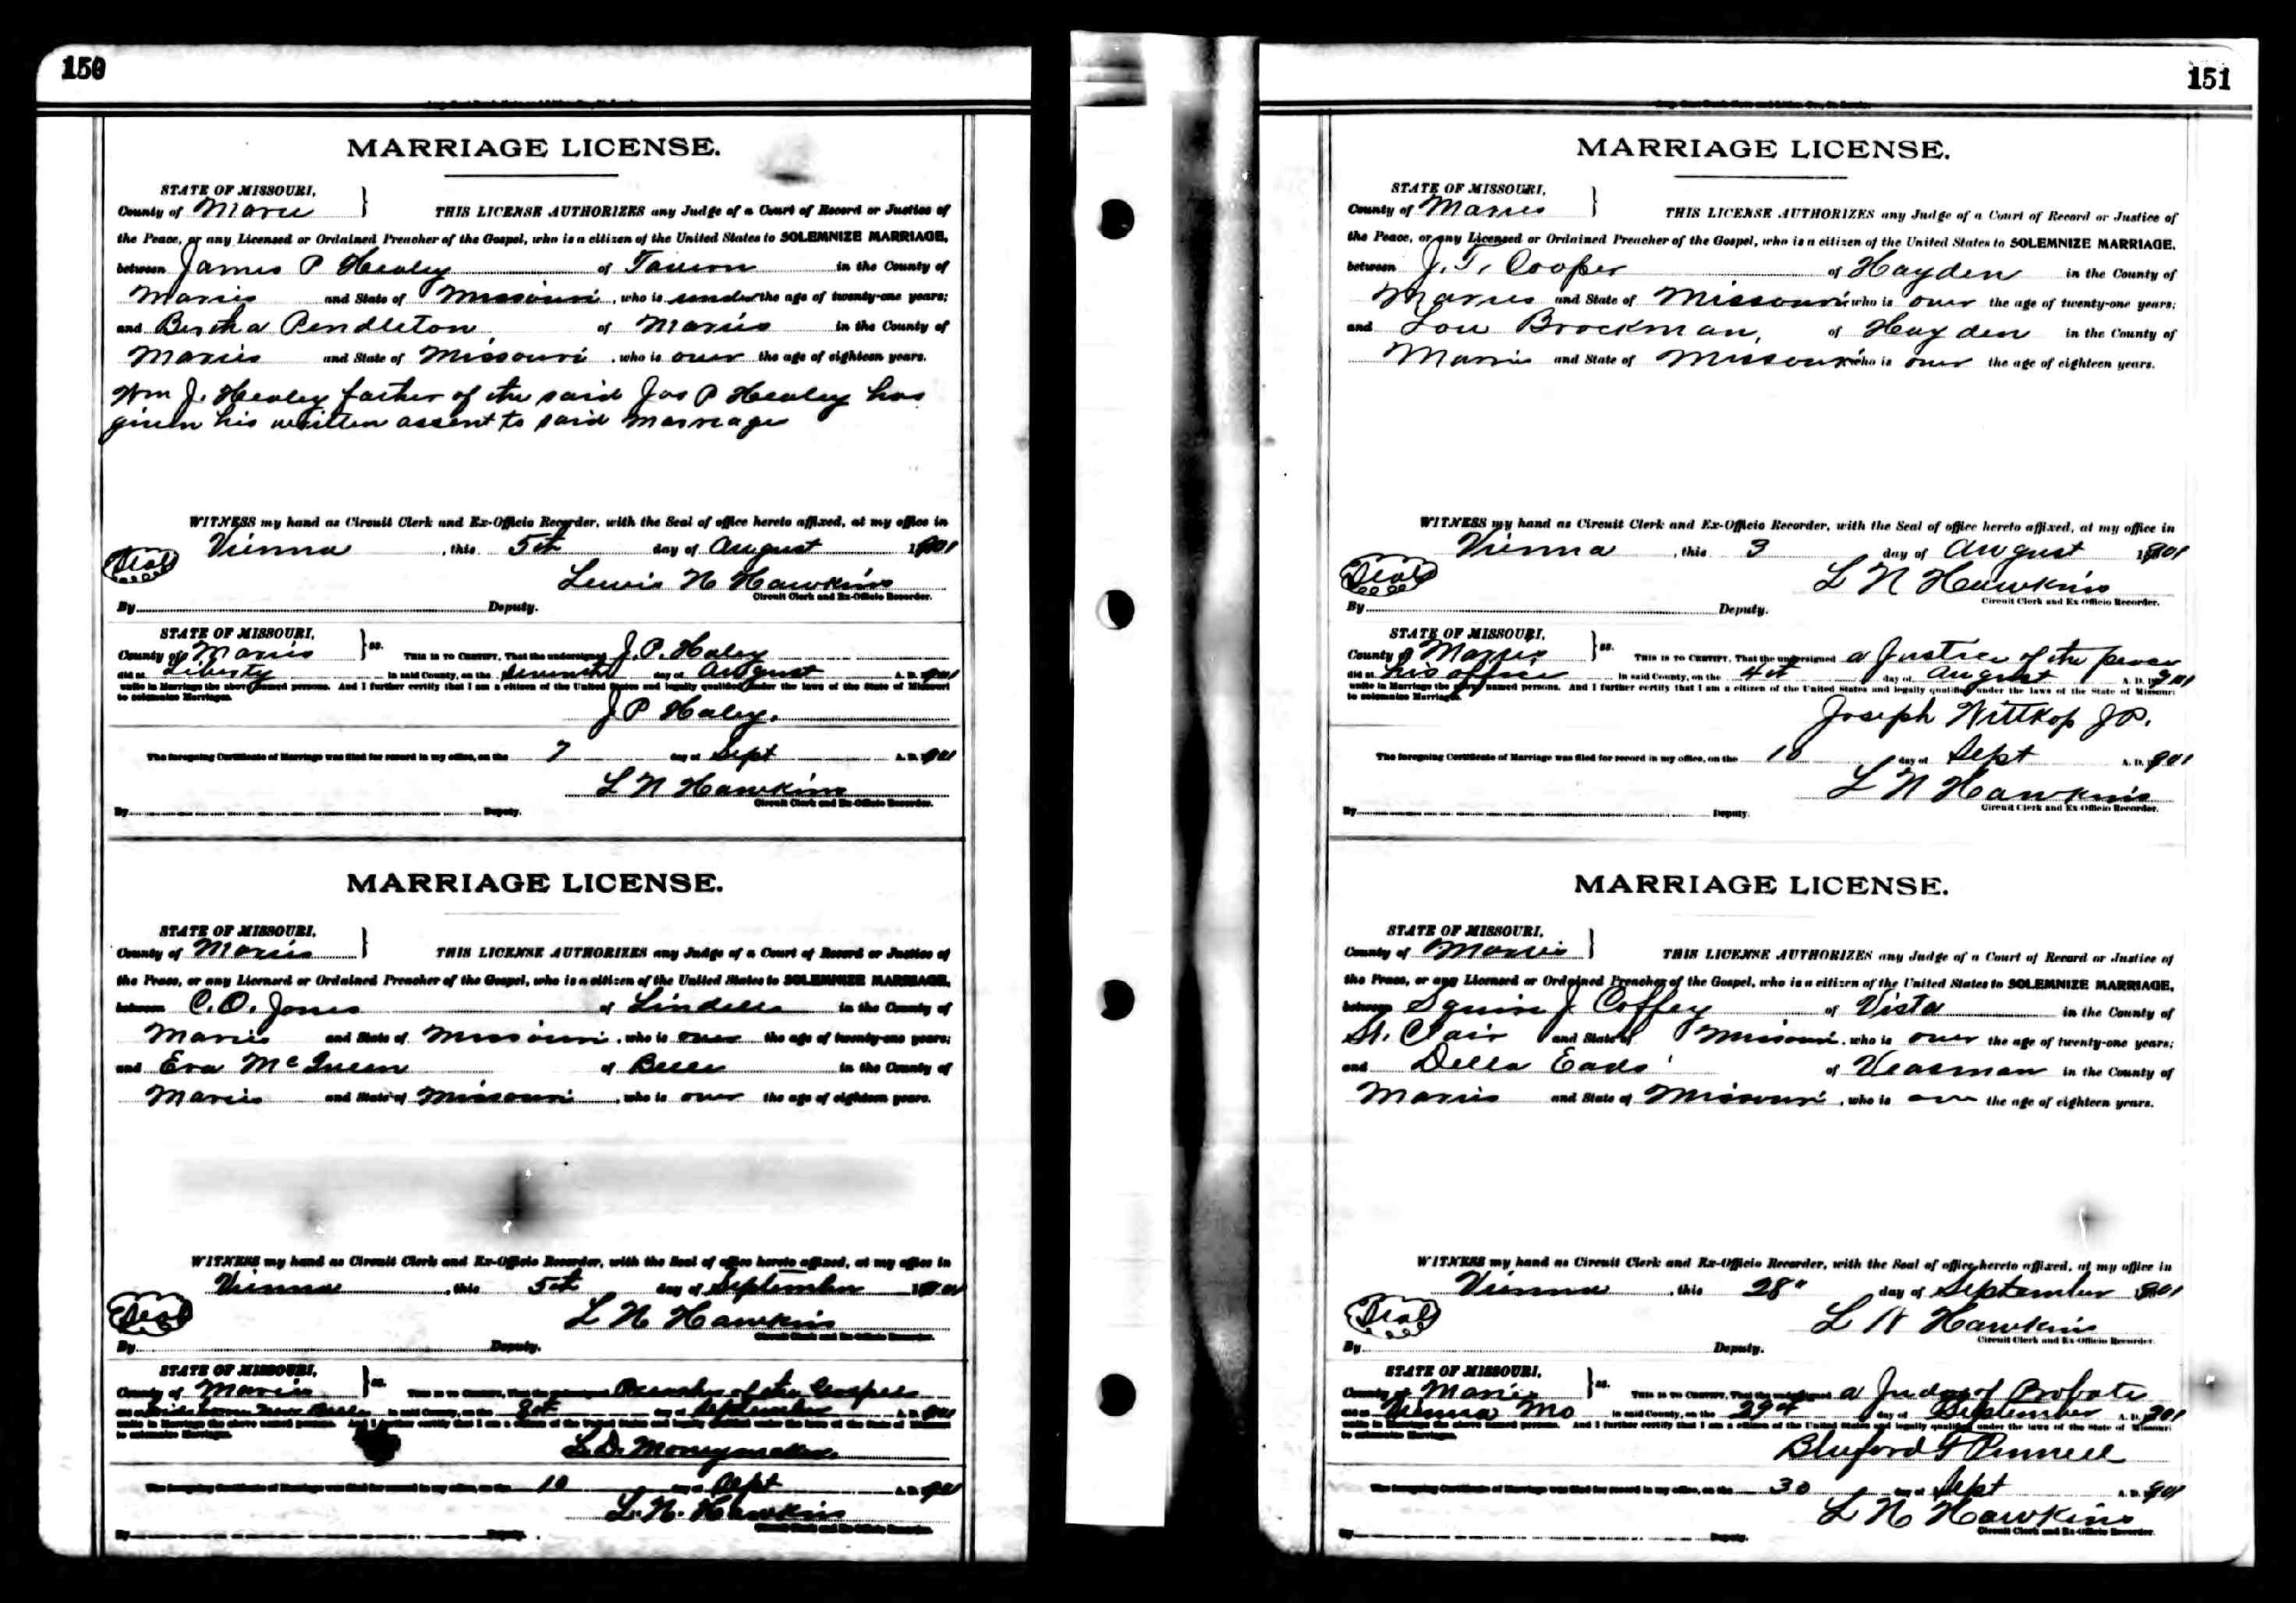 150
MARRIAGE LICENSE.
STATE OF MISSOURI,
County of Maries
THIS LICENSE AUTHORIZES any Judge of a Court of Record or Justice of
the Peace, or any Licensed or Ordained Preacher of the Gospel, who is a citizen of the United States to SOLEMNIZE MARRIAGE,
between James P Healey of Tavern in the County of
Maries and State of Missouri, who is under the age of twenty-one years;
and Bertha Pendleton of Maries in the County of
Maries and State of Missouri, who is over the age of eighteen years.
Wm J. Healey father of the said Jas P Healey has
given his written assent to said marriage
WITNESS my hand as Circuit Clerk and Ex-Officio Recorder, with the Seal of office hereto affixed, at my office in
Vienna, this 5th day of August 1901
Seal
Lewis N Hawkins
Circuit Clerk and Ex-Officio Recorder.
By Deputy.
STATE OF MISSOURI,
County of Maries ss. THIS IS TO CERTIFY, That the undersigned J. P. Haley
did at Liberty in said County, on the seventh day of August A. D. 1901
unite in Marriage the above named persons. And I further certify that I am a citizen of the United States and legally qualified under the laws of the State of Missouri
to solemnize Marriages.
J P Haley.
The foregoing Certificate of Marriage was filed for record in my office, on the 7 day of Sept A. D. 1901
L N Hawkins
Circuit Clerk and Ex-Officio Recorder.
By Deputy.
MARRIAGE LICENSE.
STATE OF MISSOURI,
County of Maries
THIS LICENSE AUTHORIZES any Judge of a Court of Record or Justice of
the Peace, or any Licensed or Ordained Preacher of the Gospel, who is a citizen of the United States to SOLEMNIZE MARRIAGE,
between C. O. Jones of Lindell in the County of
Maries and State of Missouri, who is over the age of twenty-one years;
and Eva McQueen of Belle in the County of
Maries and State of Missouri, who is over the age of eighteen years.
WITNESS my hand as Circuit Clerk and Ex-Officio Recorder, with the Seal of office hereto affixed, at my office in
Vienna, this 5th day of September 1901
Seal
L N Hawkins
Circuit Clerk and Ex-Officio Recorder.
By Deputy.
STATE OF MISSOURI,
County of Maries ss. THIS IS TO CERTIFY, That the undersigned Preacher of the Gospel
did at Belle in said County, on the 8th day of September A. D. 1901
unite in Marriage the above named persons. And I further certify that I am a citizen of the United States and legally qualified under the laws of the State of Missouri
to solemnize Marriages.
L. D. Moneymaker
The foregoing Certificate of Marriage was filed for record in my office, on the 10 day of Sept A. D. 1901
L. N. Hawkins
Circuit Clerk and Ex-Officio Recorder.
By Deputy.
151
MARRIAGE LICENSE.
STATE OF MISSOURI,
County of Maries
THIS LICENSE AUTHORIZES any Judge of a Court of Record or Justice of
the Peace, or any Licensed or Ordained Preacher of the Gospel, who is a citizen of the United States to SOLEMNIZE MARRIAGE,
between J. T. Cooper of Hayden in the County of
Maries and State of Missouri who is over the age of twenty-one years;
and Lou Brockman, of Hayden in the County of
Maries and State of Missouri who is over the age of eighteen years.
WITNESS my hand as Circuit Clerk and Ex-Officio Recorder, with the Seal of office hereto affixed, at my office in
Vienna, this 3 day of August 1901
Seal
L N Hawkins
Circuit Clerk and Ex Officio Recorder.
By Deputy.
STATE OF MISSOURI,
County of Maries ss. THIS IS TO CERTIFY, That the undersigned a Justice of the peace
did at his office in said County, on the 4th day of August A. D. 1901
unite in Marriage the above named persons. And I further certify that I am a citizen of the United States and legally qualified under the laws of the State of Missouri
to solemnize Marriages.
Joseph Wittkop J P.
The foregoing Certificate of Marriage was filed for record in my office, on the 10 day of Sept A. D. 1901
L N Hawkins
Circuit Clerk and Ex Officio Recorder.
By Deputy.
MARRIAGE LICENSE.
STATE OF MISSOURI,
County of Maries
THIS LICENSE AUTHORIZES any Judge of a Court of Record or Justice of
the Peace, or any Licensed or Ordained Preacher of the Gospel, who is a citizen of the United States to SOLEMNIZE MARRIAGE,
between Squire J Coffey of Vista in the County of
St. Clair and State of Missouri, who is over the age of twenty-one years;
and Della Eads of Veasman in the County of
Maries and State of Missouri, who is over the age of eighteen years.
WITNESS my hand as Circuit Clerk and Ex-Officio Recorder, with the Seal of office hereto affixed, at my office in
Vienna, this 28" day of September 1901
Seal
L N Hawkins
Circuit Clerk and Ex-Officio Recorder.
By Deputy.
STATE OF MISSOURI,
County of Maries ss. THIS IS TO CERTIFY, That the undersigned a Judge of Probate
did at Vienna Mo in said County, on the 29th day of September A. D. 1901
unite in Marriage the above named persons. And I further certify that I am a citizen of the United States and legally qualified under the laws of the State of Missouri
to solemnize Marriages.
Bluford F Pinnell
The foregoing Certificate of Marriage was filed for record in my office, on the 30 day of Sept A. D. 1901
L N Hawkins
Circuit Clerk and Ex-Officio Recorder.
By Deputy.